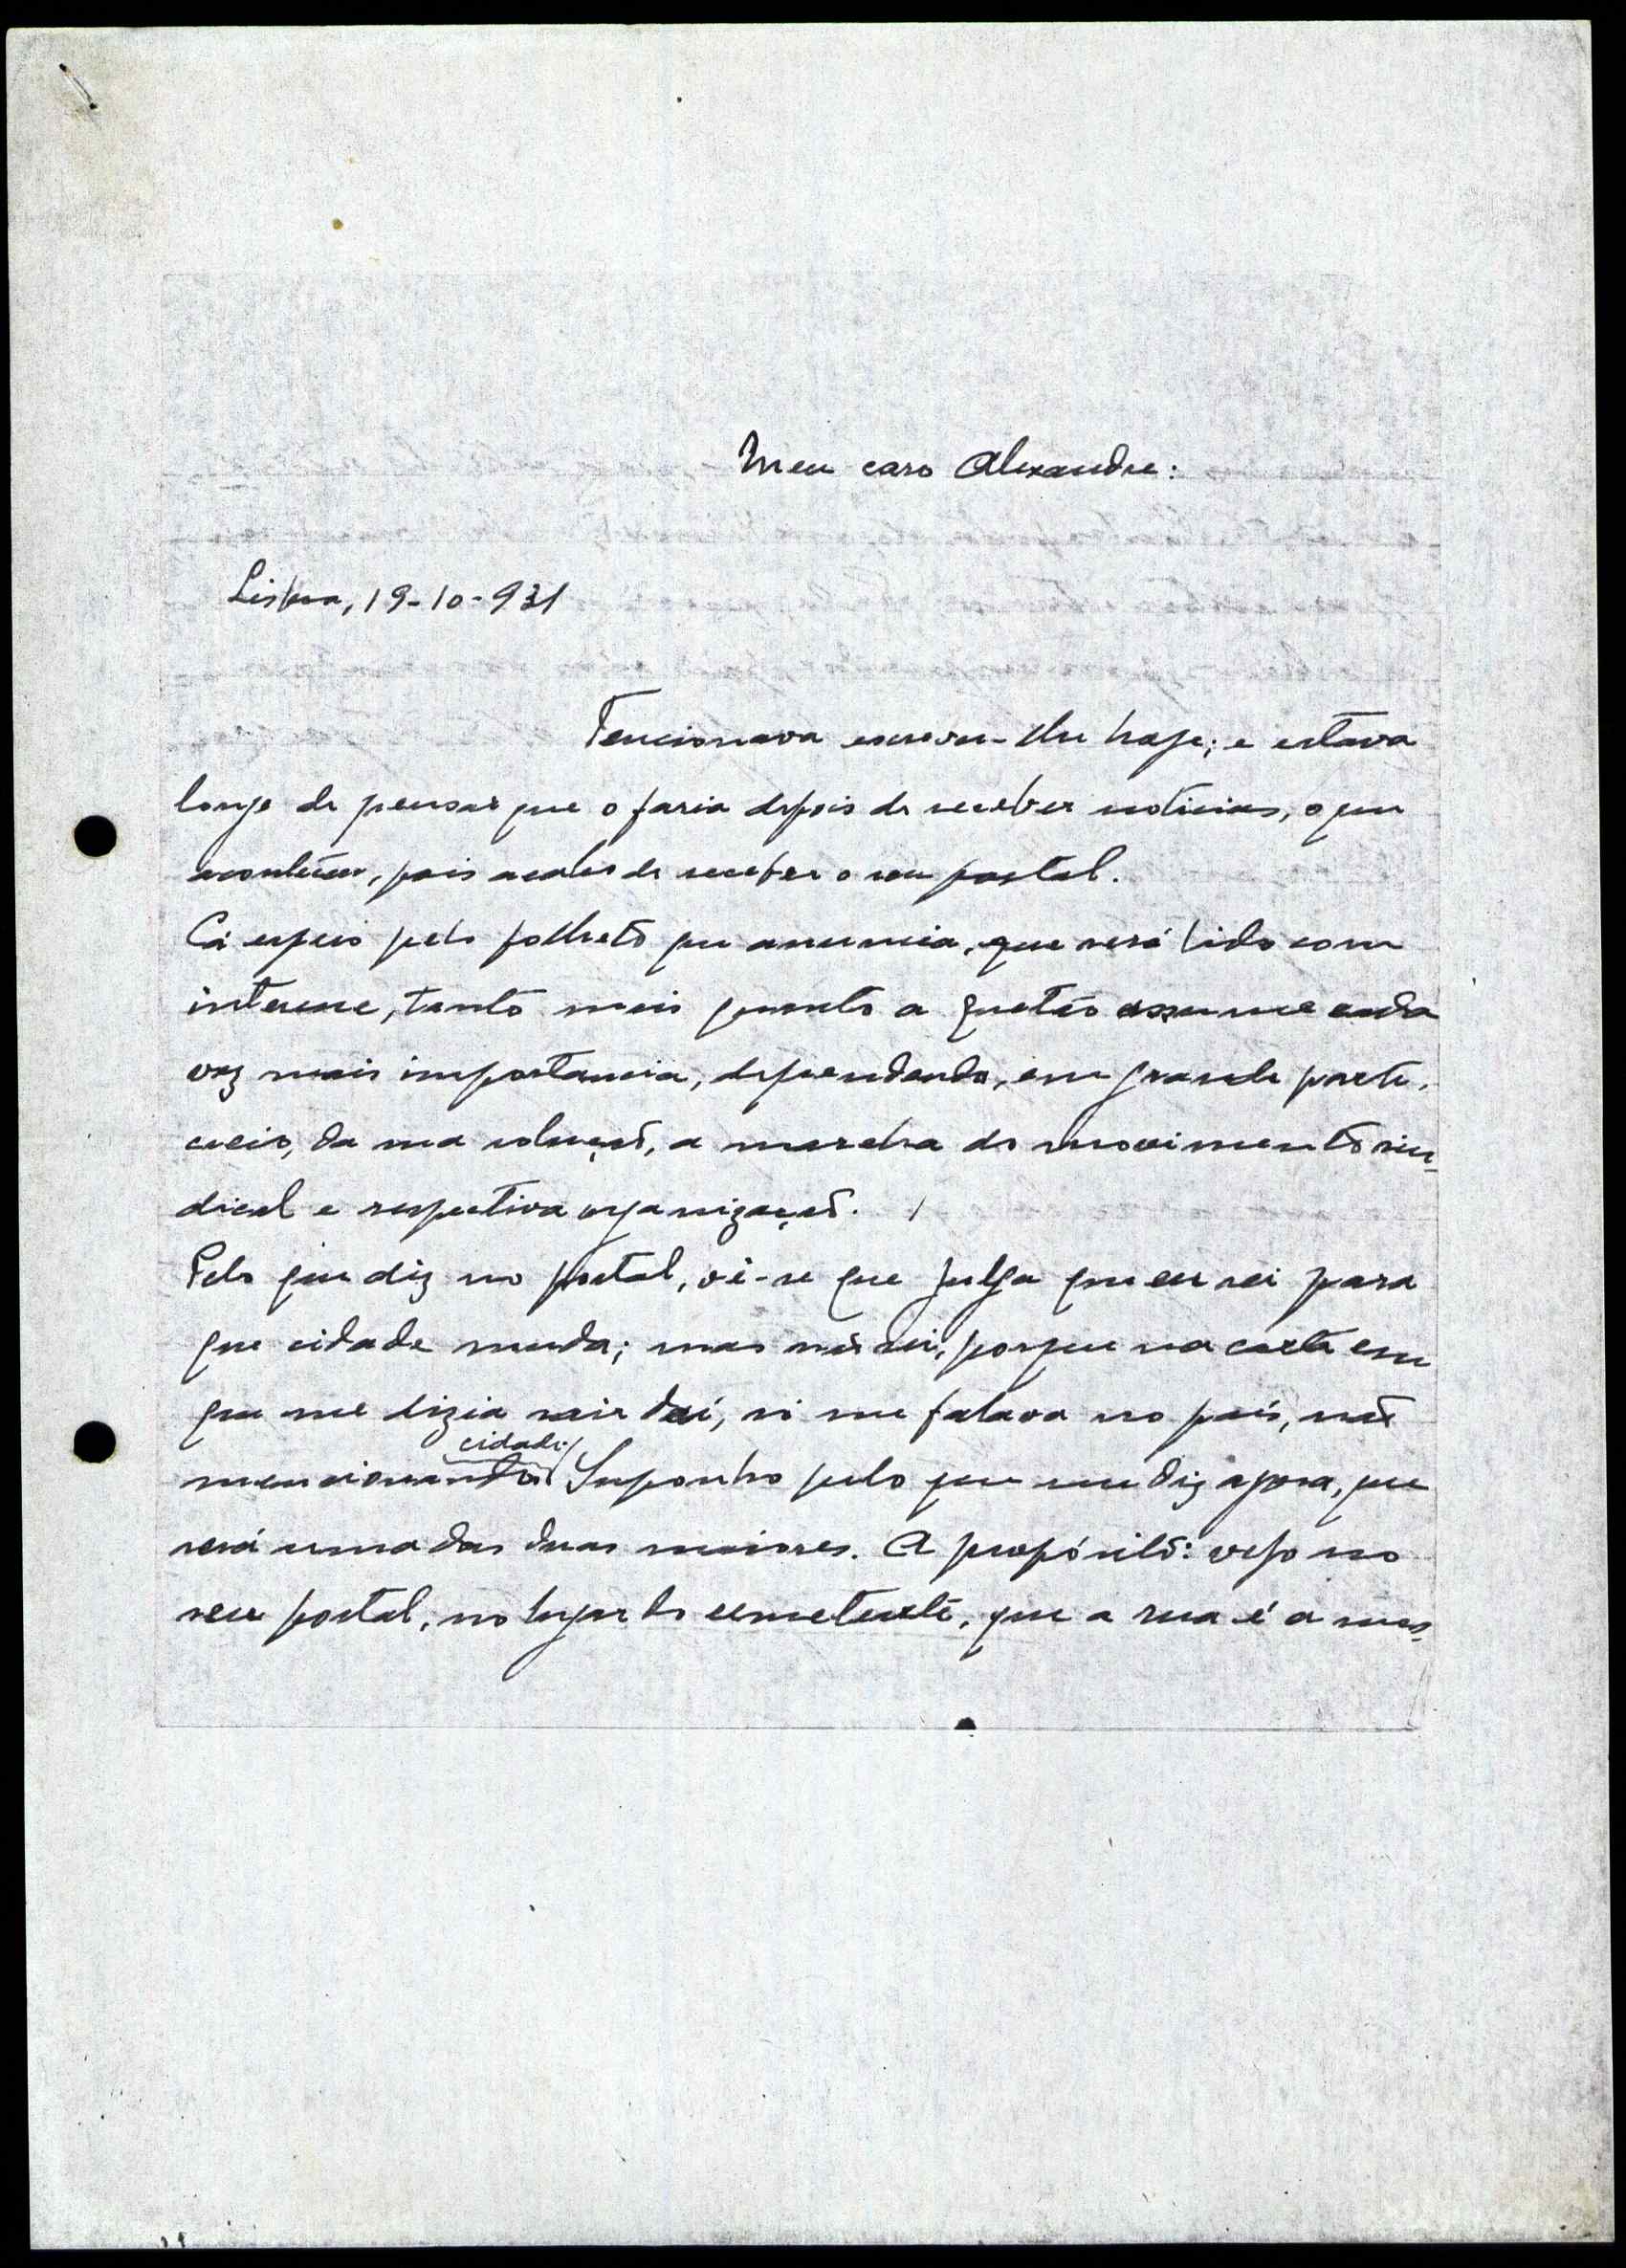 Meu caro Alexandre:
Lisboa, 19-10-931
Tencionava escrever-lhe hoje; e estava
longe de pensar que o faria depois de receber noticias, o que
aconteceu, pois acabo de receber o seu postal.
Cá espero pelo folheto que anuncia, que será lido com
interesse, tanto mais quanto a questão assume cada
vez mais importancia, dependendo, em grande parte,
creio, da sua solução, a marcha do movimento sin-
dical e respectiva organização.
Pelo que diz no postal, vê-se que julga que eu sei para
que cidade muda; mas não sei, porque na carta em
que me dizia sair daí, só me falava no país, não
mencionando cidade. Suponho pelo que me diz agora, que
será uma das duas maiores. A propósito: vejo no
seu postal, no lugar do remetente, que a rua é a mes-